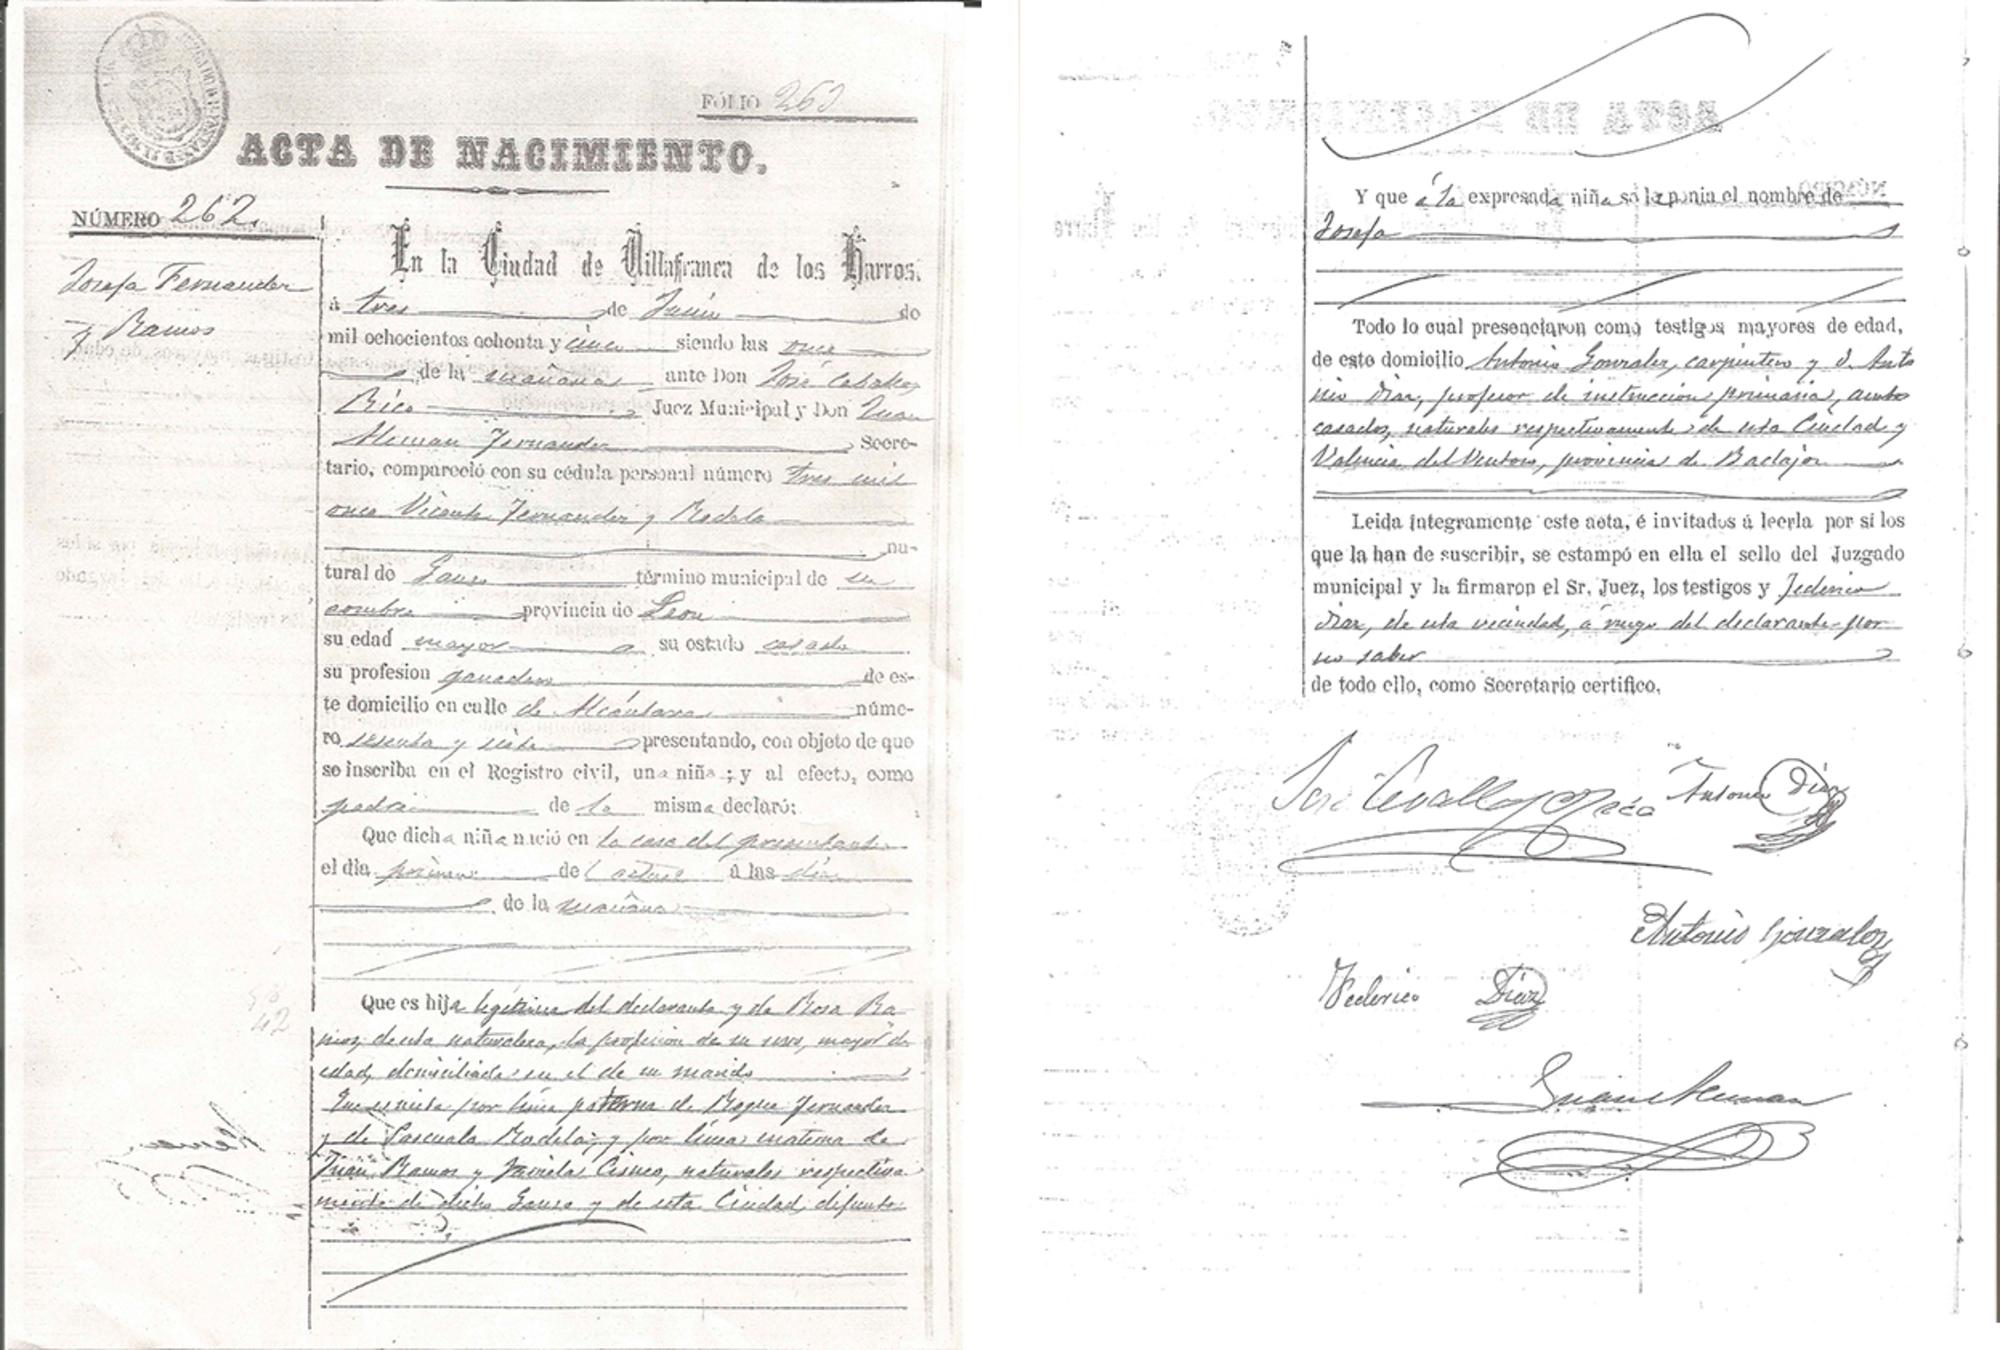 FÓLIO 263
ACTA DE NACIMIENTO.
NÚMERO 262.
Josefa Fernandez
y Ramos
En la Ciudad de Villafranca de los Barros.
á tres de Junio de
mil ochocientos ochenta y cinco siendo las once
de la mañana ante Don José Caballos
Rico Juez Municipal y Don Juan
Aleman Fernandez Secre-
tario, compareció con su cédula personal número tres mil
once Vicente Fernandez y Rodela
na-
tural de término municipal de su
nombre provincia de Leon
su edad mayor su estado casado
su profesion ganadero de es-
te domicilio en calle de Alcántara núme-
ro sesenta y siete presentando, con objeto de que
se inscriba en el Registro civil, una niña; y al efecto, como
padre de la misma declaró:
Que dicha niña nació en la casa del presentante
el dia primero del actual á las diez
de la mañana
Que es hija legítima del declarante y de Rosa Ra-
mos, de esta naturaleza, la profesion de su sexo, mayor de
edad, domiciliada en el de su marido
Que es nieta por línea paterna de Roque Fernandez
y de Pascuala Rodela; y por línea materna de
Juan Ramos y Cisneo, naturales respectiva
mente de dicho y de esta Ciudad, difuntos
Y que á la expresada niña se la ponia el nombre de
Josefa
Todo lo cual presenciaron como testigos mayores de edad,
de este domicilio Antonio Gonzalez, carpintero y D. Anto
nio Diaz, profesor de instruccion primaria, ambos
casados, naturales respectivamente de esta Ciudad y
Valencia del Ventoso, provincia de Badajoz
Leida íntegramente este acta, é invitados á leerla por sí los
que la han de suscribir, se estampó en ella el sello del Juzgado
municipal y la firmaron el Sr. Juez, los testigos y Federico
Diaz, de esta vecindad, á ruego del declarante por
no saber
de todo ello, como Secretario certifico.
José Cevallos y Rico
Antonio Diaz
Antonio Gonzalez
Federico Diaz
Juan Aleman